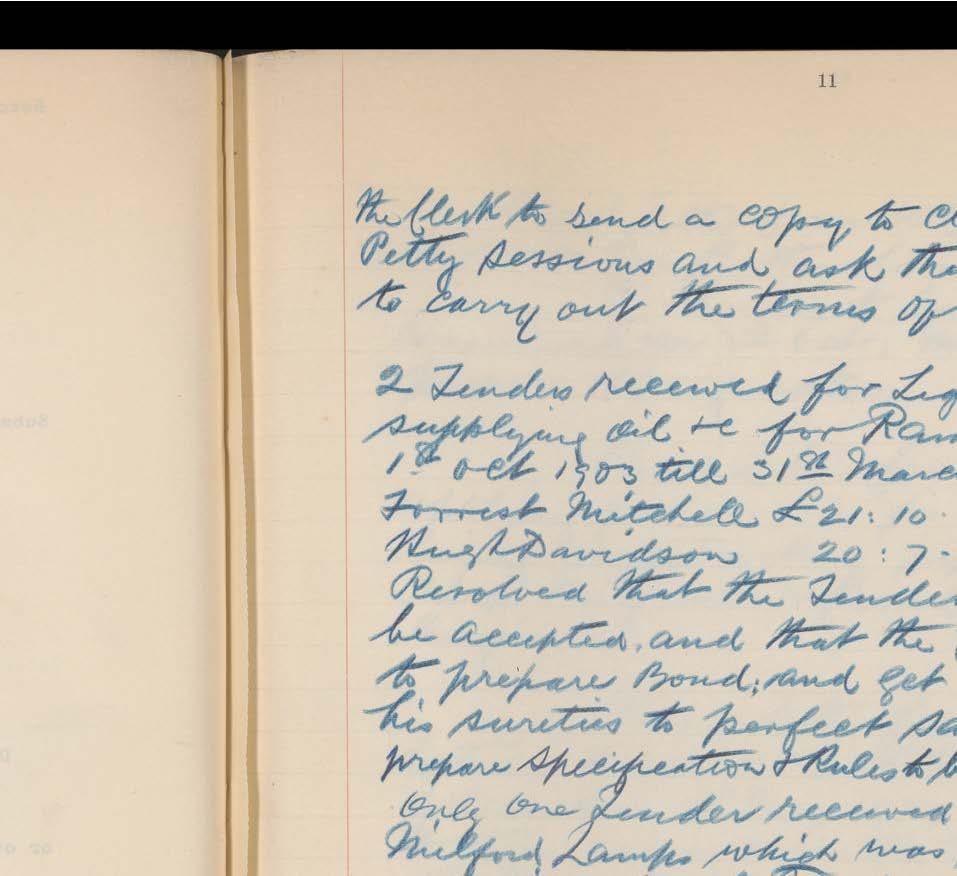 11
the Clerk to send a copy to Cl
Petty Sessions and ask tha
to carry out the terms of
2 Tenders received for Lig
supplying oil &c for Ram
1st Oct 1903 till 31st Marc
Forrest Mitchell £21: 10.
Hugh Davidson 20: 7.
Resolved that the Tender
be accepted, and that the
to prepare Bond, and get
his sureties to perfect sa
prepare Specification & Rules to b
only one Tender received
Milford Lamps which was